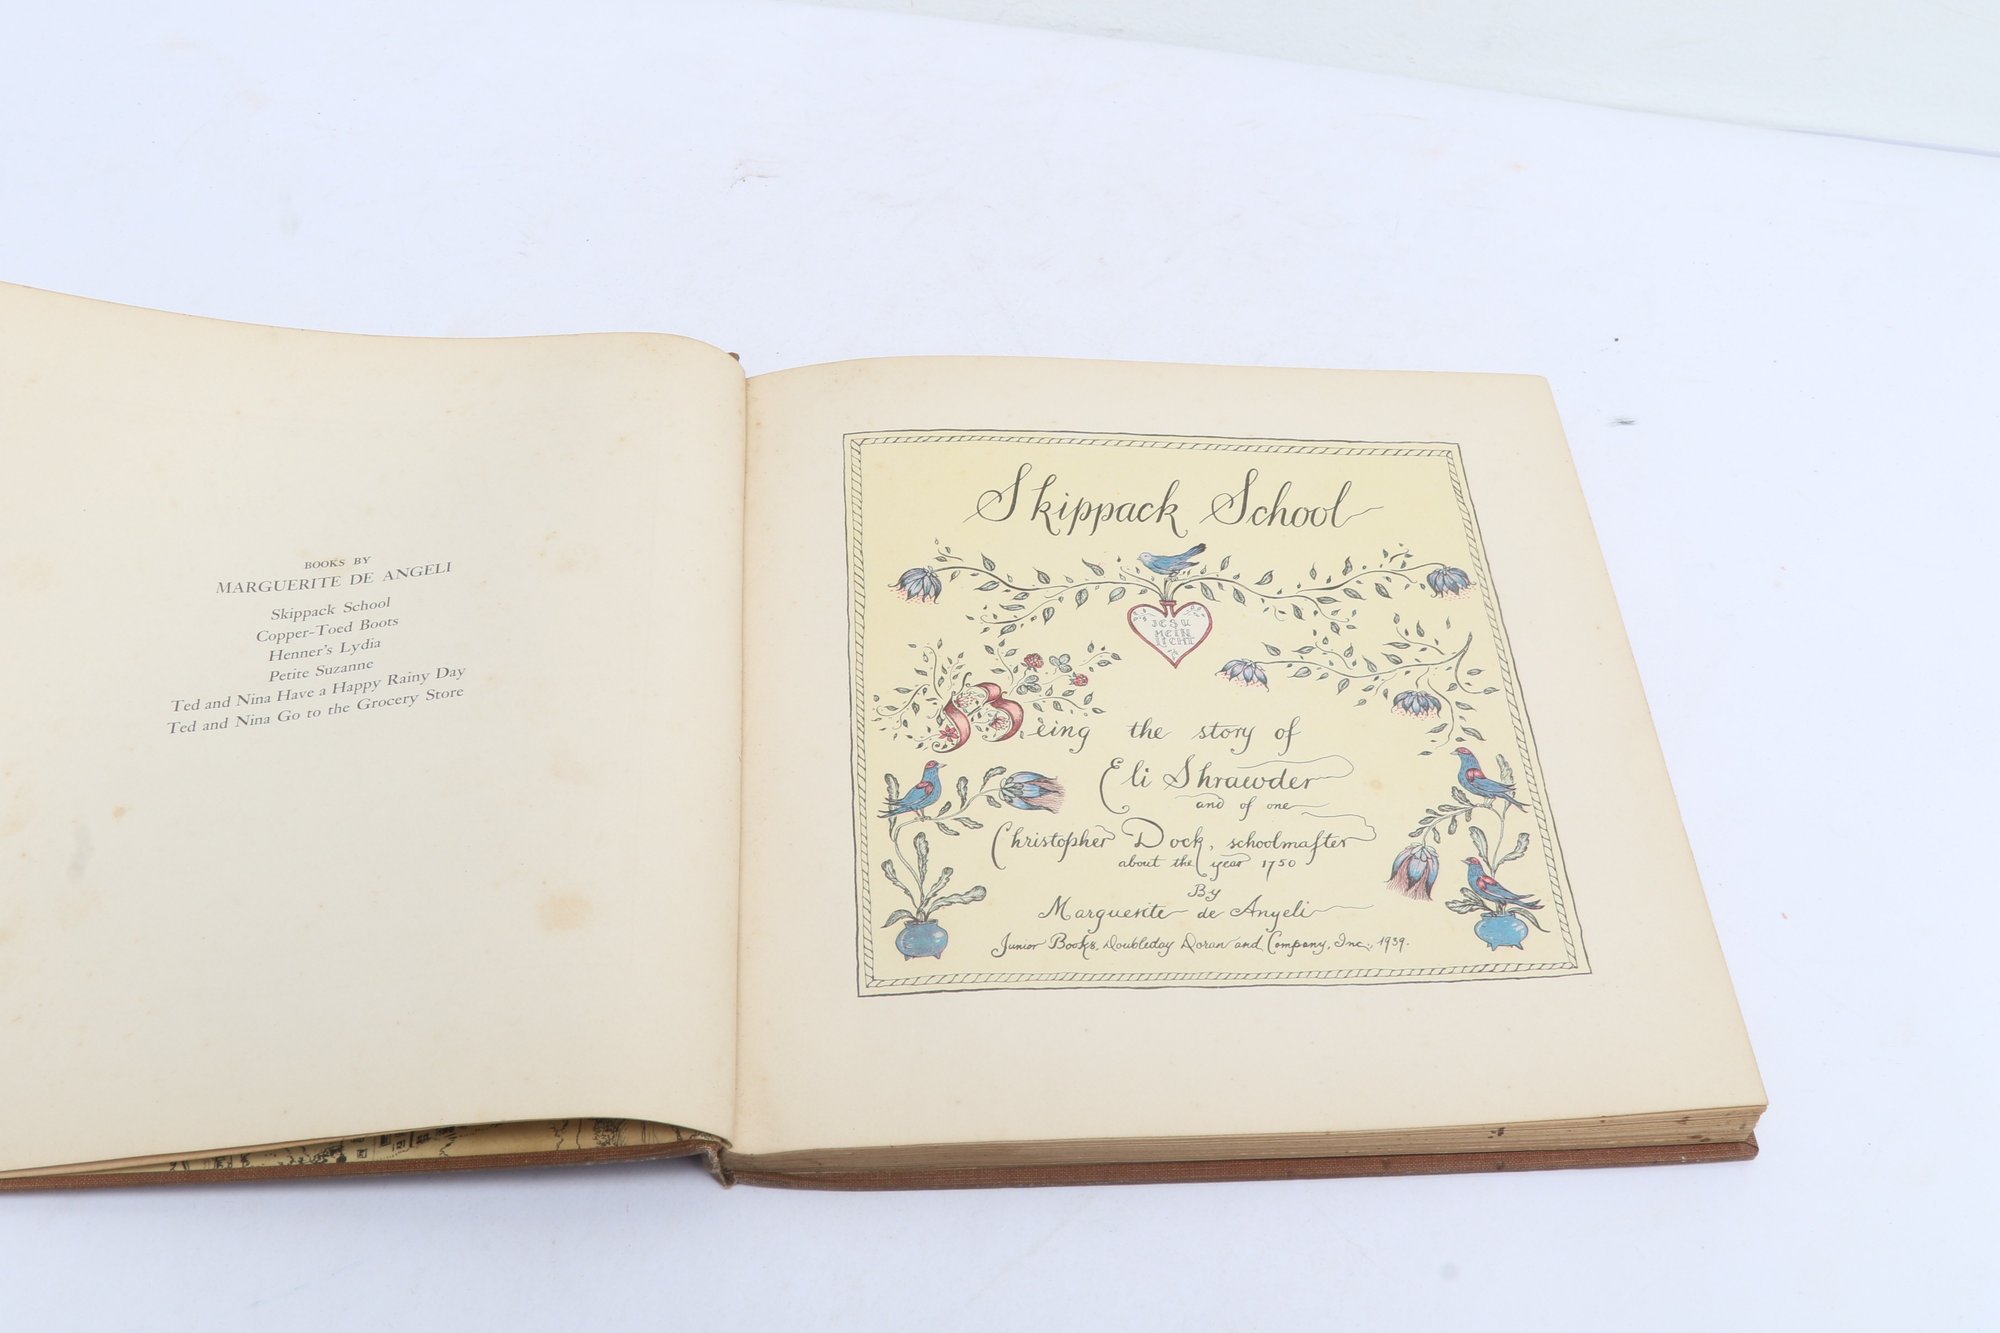 BOOKS BY
MARGUERITE DE ANGELI
Skippack School
Copper-Toed Boots
Henner's Lydia
Petite Suzanne
Ted and Nina Have a Happy Rainy Day
Ted and Nina Go to the Grocery Store
Skippack School
JESU
MEIN
LICHT
Being the story of
Eli Shrawder
and of one
Christopher Dock, schoolmaſter
about the year 1750
By
Marguerite de Angeli
Junior Books, Doubleday Doran and Company, Inc., 1939.